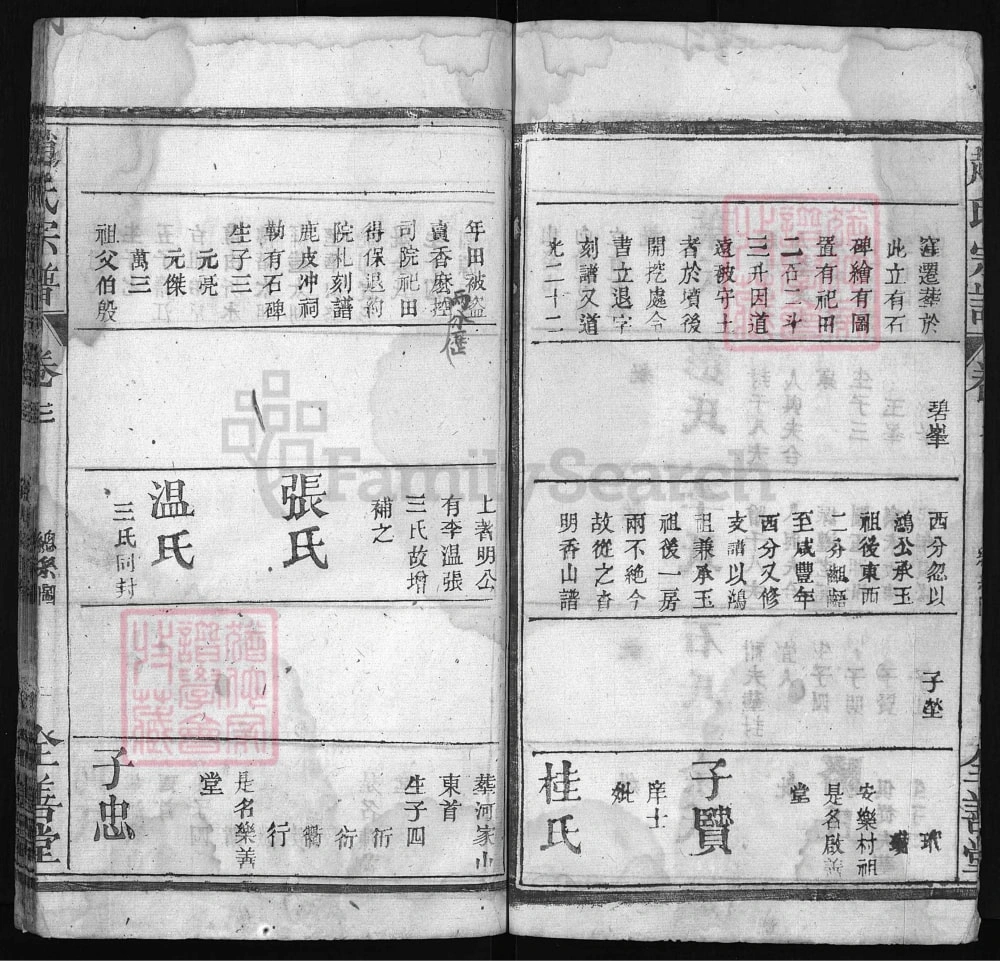 窪遷葬於
此立有石
碑繪有圖
置有祀田
二石二斗
三升因道
遠被守土
者於墳後
開挖處令
書立退字
刻譜又道
光二十二
碧峯
西分忽以
鴻公承玉
祖後東西
二分齟齬
至咸豐年
西分又修
支譜以鴻
祖兼承玉
祖後一房
兩不絕今
故從之查
明香山譜
子瑩
安樂村祖
是名啟善
堂
子賢
庠士
妣
桂氏
全善堂
年田被盜
賣香麽控
司院祀田
得保退約
院札刻譜
鹿皮沖祠
勒有石碑
生子三
元亮
元傑
萬三
祖父伯殷
上著明公
有李温張
三氏故增
補之
張氏
温氏
三氏同封
葬河家山
東首
生子四
衍
衍
衢
行
是名樂善
堂
子忠
氏宗譜
卷三
總系圖
全善堂
FamilySearch